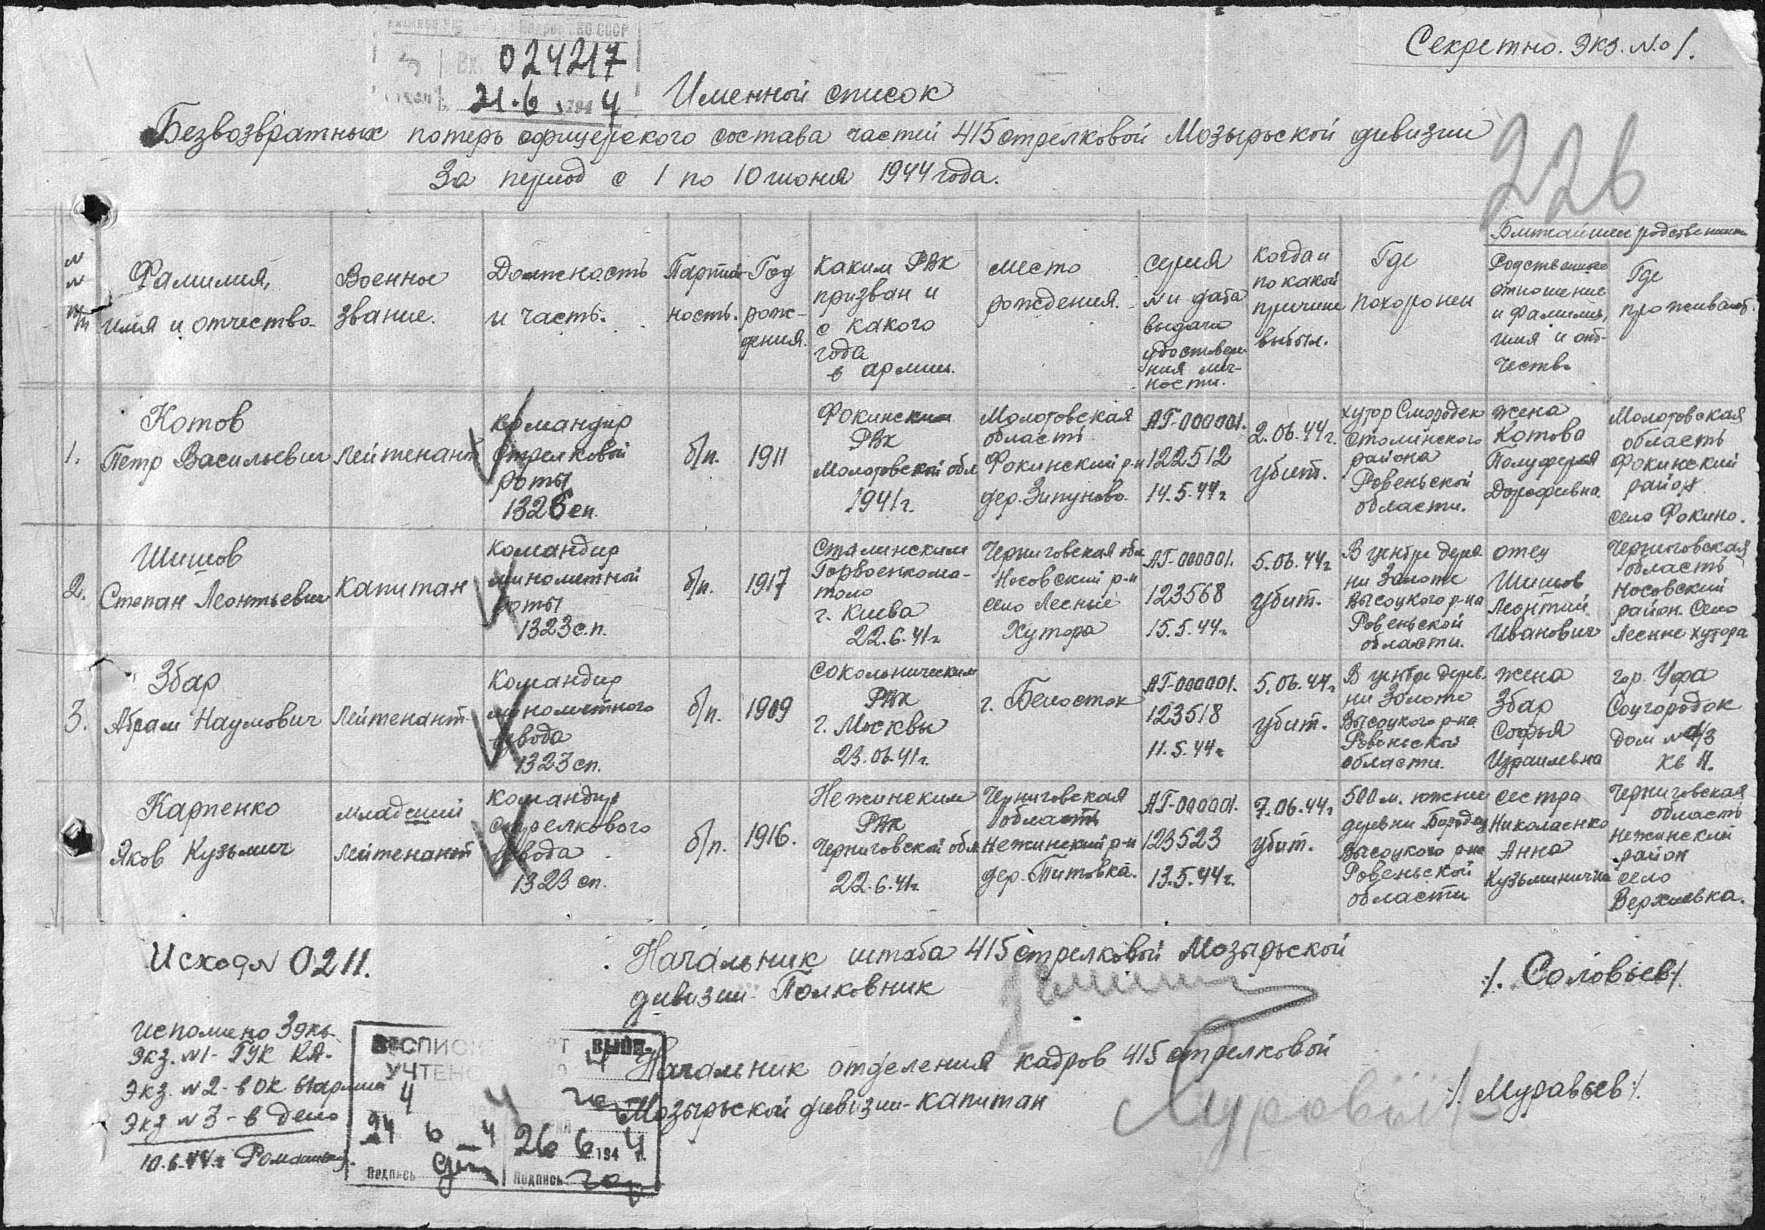 Секретно. Экз. No 1.
Вх. 024217
21.6 1944
Именной список
Безвозвратных потерь офицерского состава частей 415 стрелковой Мозырьской дивизии
За период с 1 по 10 июня 1944 года.
226
Фамилия, имя и отчество.
Военное звание.
Должность и часть.
Партийность.
Год рождения.
Каким РВК призван и с какого года в армии.
Место рождения.
Серия № и дата выдачи удостоверения личности.
Когда и по какой причине выбыл.
Где похоронен
Ближайшие родственники
Родственное отношение и фамилия, имя и отчество
Где проживают.
1.
Котов
Петр Васильевич
Лейтенант
Командир
стрелковой
роты
1326 сп.
б/п.
1911
Фокинским
РВК
Молотовской обл
1941 г.
Молотовская
область
Фокинский р-н
дер. Зипуново.
АГ-000001.
122512
14.5.44 г
2.06.44 г.
убит.
хутор Смородск
Столинского
района
Ровеньской
области.
жена
Котова
Дорофеевна
Молотовская
область
Фокинский
район
село Фокино.
2.
Шишов
Степан Леонтьевич
Капитан
Командир
минометной
роты
1323 с.п.
б/п.
1917
Сталинским
Горвоенкома-
том
г. Киева
22.6.41 г
Черниговская обл
Носовский р-н
село Лесные
Хутора
АГ-000001.
123568
15.5.44 г
5.06.44 г
убит.
В центре дерев
ни Золоте
Высоцкого р-на
Ровеньской
области.
отец
Шишов
Леонтий
Иванович
Черниговская
область
Носовский
район. Село
Лесные хутора
3.
Збар
Абрам Наумович
Лейтенант
Командир
минометного
взвода
1323 сп.
б/п.
1909
Сокольническим
РВК
г. Москвы
23.06.41 г.
г. Белосток
АГ-000001.
123518
11.5.44 г
5.06.44 г.
убит.
В центре дерев
ни Золоте
Высоцкого р-на
Ровеньской
области.
жена
Збар
Софья
Израилевна
гор. Уфа
Соцгородок
4.
Карпенко
Яков Кузьмич
младший
лейтенант
Командир
стрелкового
взвода
1323 сп.
б/п.
1916.
Нежинским
РВК
Черниговской обл
22.6.41 г.
Черниговская
область
Нежинский р-н
дер. Титовка.
АГ-000001.
123523
13.5.44 г.
7.06.44 г
убит.
500 м. южнее
деревни
Высоцкого р-на
Ровеньской
области
сестра
Николаенко
Анна
Кузьминична
Черниговская
область
Нежинский
район
село
Верхиевка.
Исход № 0211.
Начальник штаба 415 стрелковой Мозырьской
дивизии - Полковник
/. Соловьев /.
Исполнено 3 экз.
Экз. №1 - ГУК КА.
Экз. №2 - в ОК армии
Экз №3 - в дело
10.6.44 г
Начальник отделения кадров 415 стрелковой
Мозырьской дивизии - капитан
Муравьев
/. Муравьев /.
УЧТЕНО
24 6 4
26 6 1944 г.
Подпись
Подпись